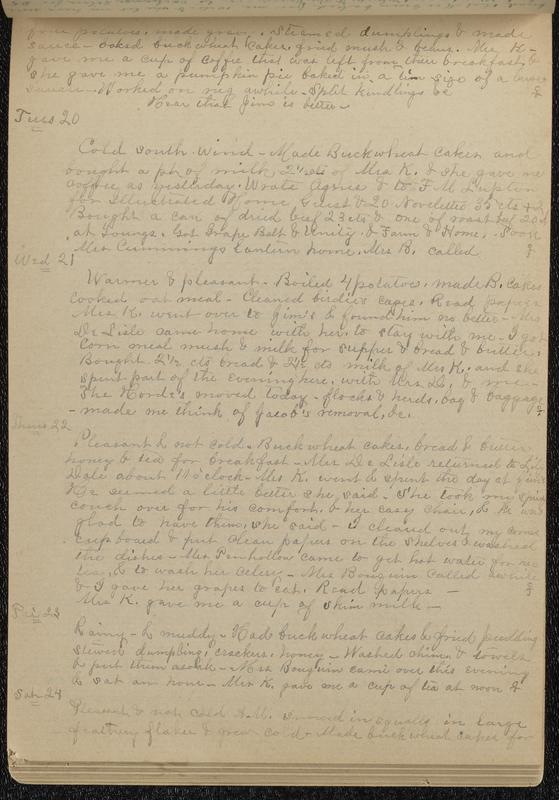 four potatoes, made gravy. Steamed dumplings & made
sauce - baked buckwheat cakes, fried mush & beans. Mrs K-
gave me a cup of coffee that was left from their breakfast, &
she gave me a pumpkin pie baked in a tin size of a large
saucer - Worked on rug awhile - Split kindlings &c
Hear that Jim is better -
Tues 20
Cold south wind - Made Buckwheat cakes and
bought a pt of milk 2½ cts of Mrs K. & she gave me
coffee as yesterday. Wrote Agnes & to F M Lupton
for Illustrated Home Guest & 20 Novelettes 35 cts
Bought a can of dried beef 23 cts & one of roast beef 20
at Youngs. Got Grape Belt & Unity & Farm & Home. Took
Mrs Cummings lantern home. Mrs B. called
Wed 21
Warmer & pleasant - Boiled 4 potatoes, made B. cakes
cooked oat meal - Cleaned birdie's cages. Read papers
Mrs K. went over to Jim's & found him no better - Mrs
De Lisle came home with her, to stay with me - I got
corn meal mush & milk for supper & bread & butter.
Bought 2½ cts bread & 2½ cts milk of Mrs K. and she
spent part of the evening here, with Mrs D. & me -
The Hordz's moved today - flocks & herds, bag & baggage
- made me think of Jacob's removal, &c.
Thurs 22
Pleasant & not cold - Buckwheat cakes, bread & butter
honey & tea for breakfast - Mrs De Lisle returned to Lily
Dale about 11 o'clock - Mrs K. went & spent the day at Jim's
He seemed a little better she said - She took my
couch over for his comfort, & her easy chair, & he was
glad to have them, she said - I cleaned out my
cupboard & put clean papers on the shelves & washed
the dishes - Mrs Penhollow came to get hot water for
tea, & to wash her celery - Mrs Bouquin called awhile
& I gave her grapes to eat. Read papers -
Mrs K. gave me a cup of skim milk -
Fri 23
Rainy - & muddy - Had buckwheat cakes & fried pudding
stewed dumpling, crackers, honey - Washed & towels
& put them asoak - Mrs Bouquin came over this evening
& sat an hour - Mrs K. gave me a cup of tea at noon &
Sat 24
Pleasant & not cold A.M. snowed in squalls in large
feathery flakes & grew cold - Made buckwheat cakes for